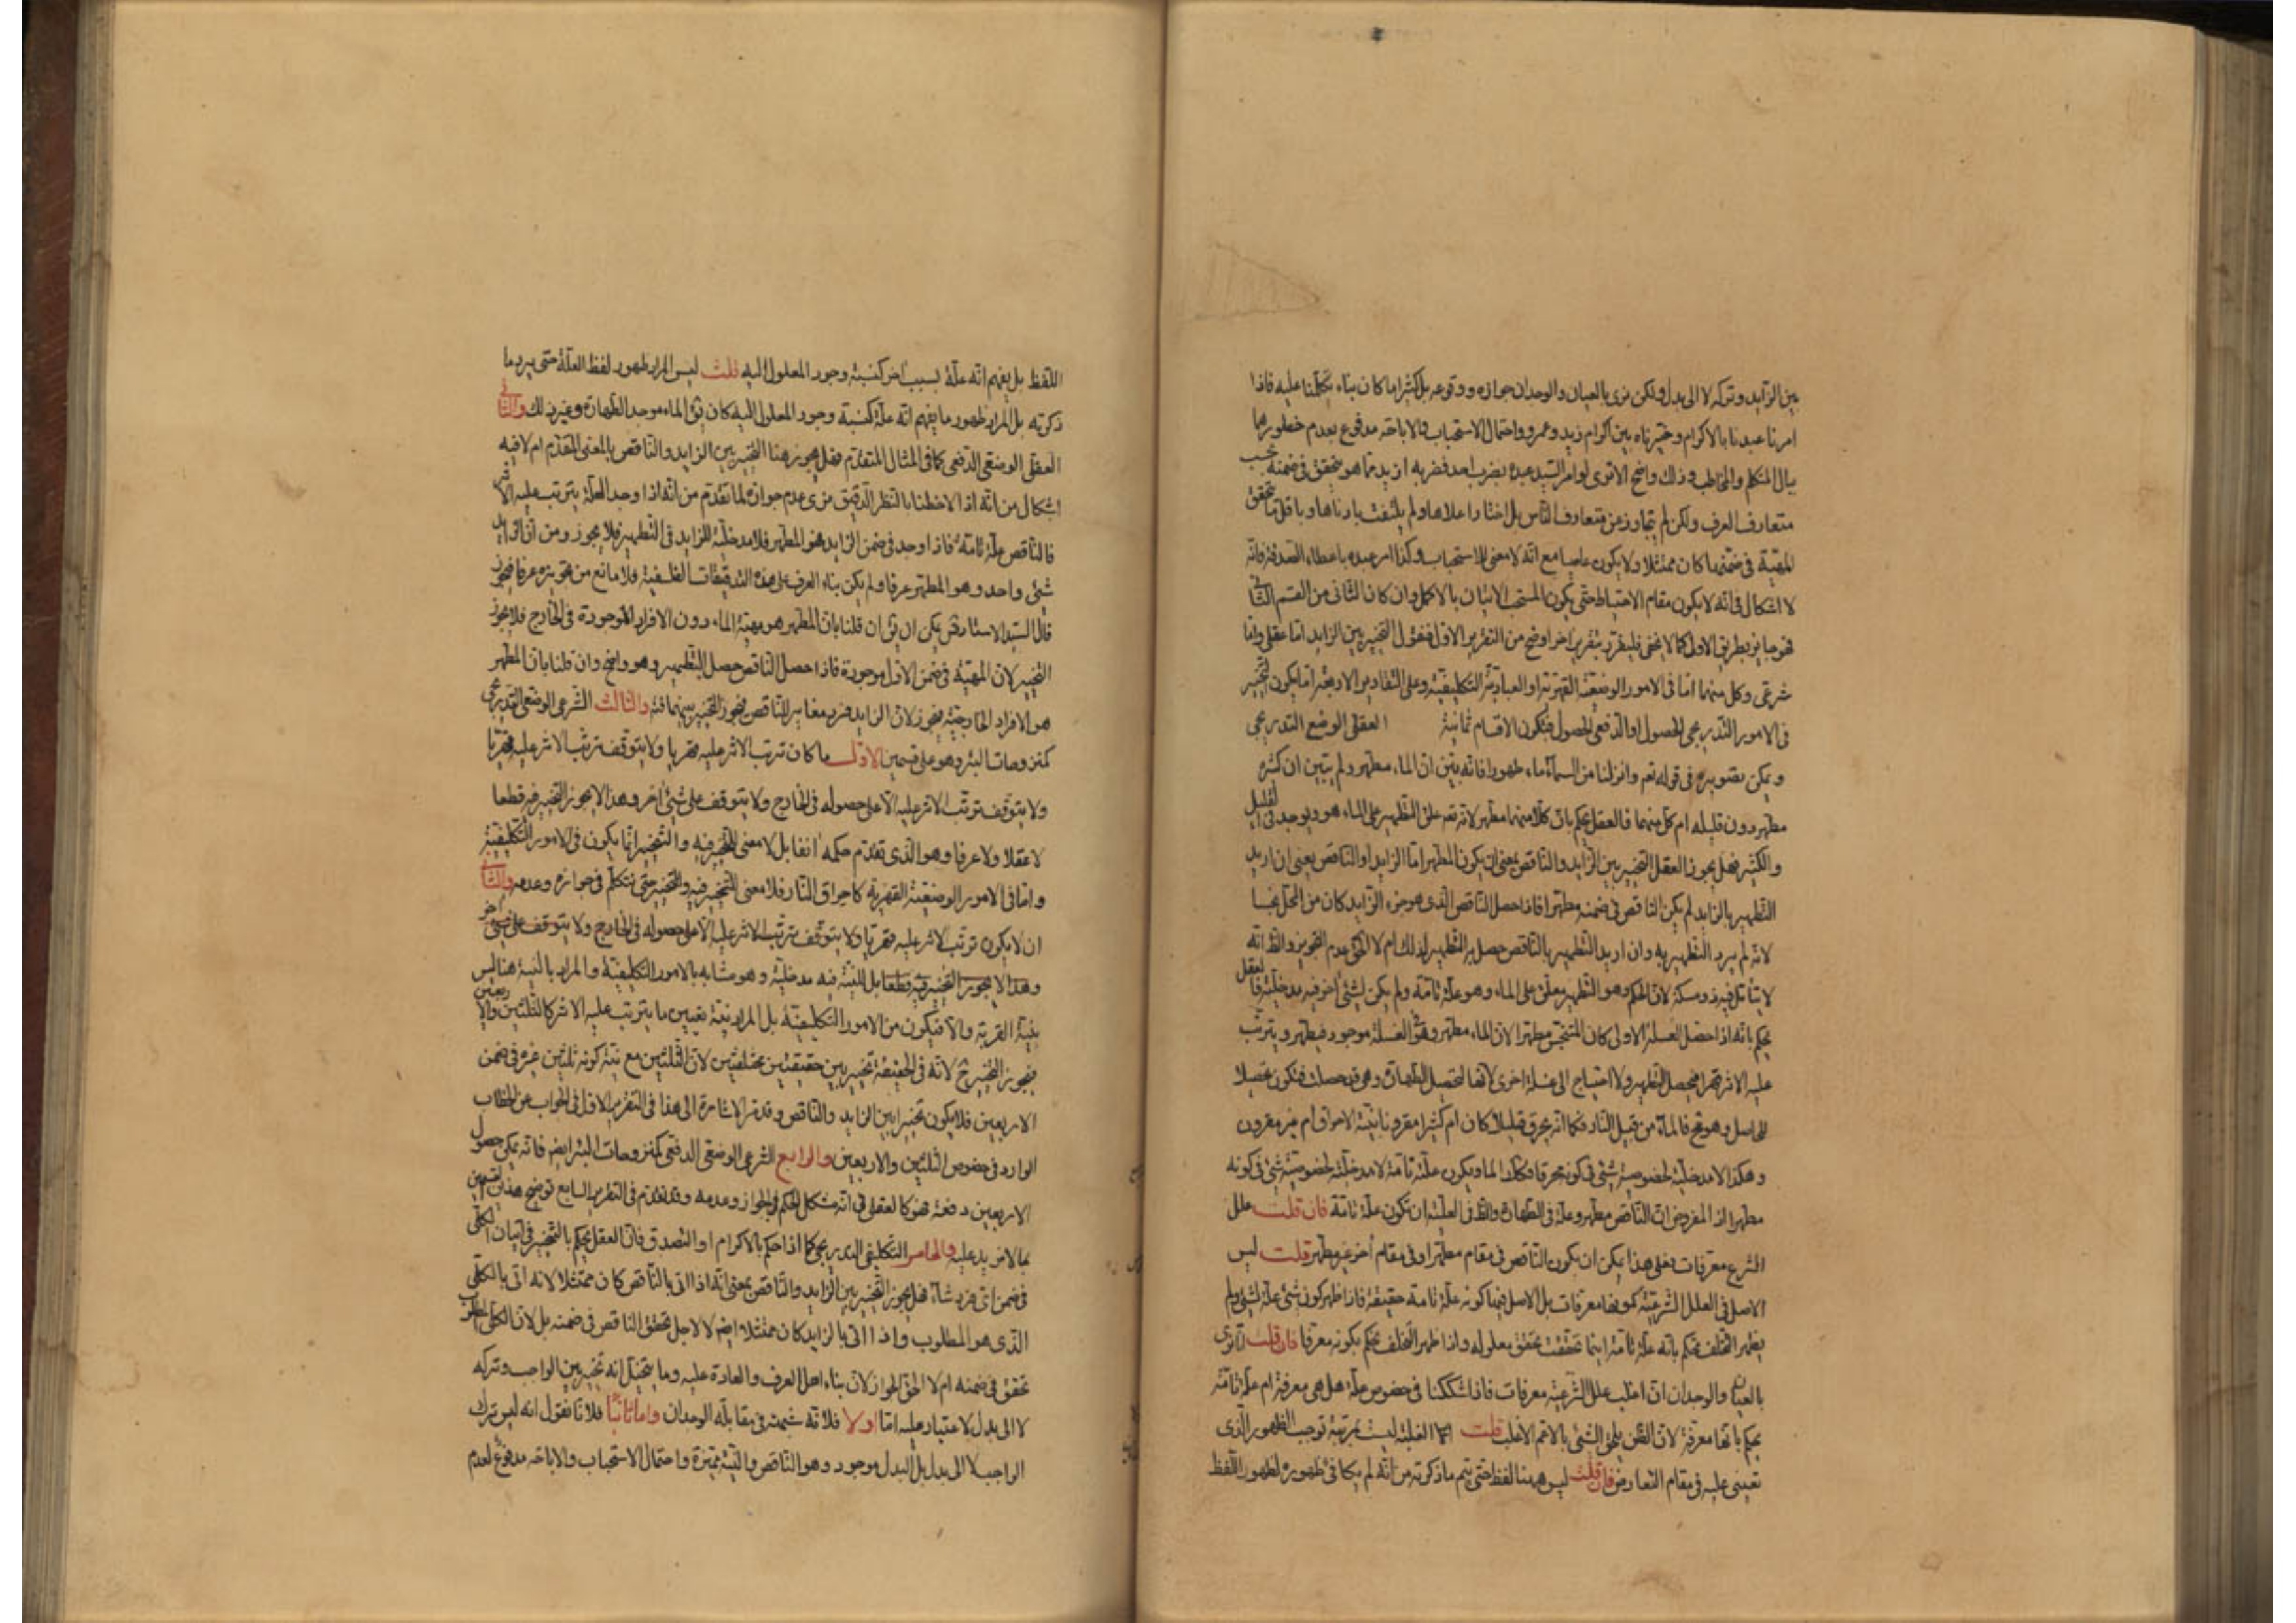 بين الزايد وتركه لا الى بدل ولكن نرى بالعيان والوجدان جوازه ووقوعه بل كثيرا ما كان بناء تكلمنا عليه فاذا
امرنا عبدنا بالاكرام وخيرناه بين اكرام زيد وعمرو واحتمال الاستحباب والاباحة مدفوع بعدم خطورهما
ببال المتكلم والمخاطب وذلك واضح الا ترى لو امر السيد عبده بضرب احد فضربه ازيد مما هو يتحقق في ضمنه بحسب
متعارف العرف ولكن لم يتجاوز عن متعارف الناس بل اختار اعلاها ولم يلتفت بادناها وباقل ما يتحقق
المهية في ضمنها كان ممتثلا ولا يكون عاصيا مع انه لا معنى للاستحباب وكذا امر عبده باعطاء الصدقة فانه
لا اشكال في انه لا يكون مقام الاحتياط حتى يكون المستحب الاتيان بالاكمل وان كان الثاني من القسم الثاني
فهو جايز بطريق الاولى كما لا يخفى فليقرر بتقرير اخر اوضح من التقرير الاول فنقول التخيير بين الزايد اما عقلي واما
شرعي وكل منهما اما في الامور الوضعية القهرية او العبادية التكليفية وعلى التقادير الاربعة اما يكون التخيير
في الامور التدريجي الحصول او الدفعي الحصول فيكون الاقسام ثمانية العقلي الوضع التدريجي
ويمكن تصويره في قوله تعم وانزلنا من السماء ماء طهورا فانه يبين ان الماء مطهر ولم يبين ان كثره
مطهر دون قليله ام كل منهما فالعقل يحكم بان كلا منهما مطهر لانه تعم علق التطهير على الماء هو ويوجد في القليل
والكثير فهل يجوز العقل التخيير بين الزايد والناقص بمعنى ان يكون المطهر اما الزايد او الناقص يعني ان اريد
التطهير بالزايد لم يكن الناقص في ضمنه مطهرا فاذا حصل الناقص الذي هو جزء الزايد كان من المحل نجسا
لانه لم يرد التطهير به وان اريد التطهير بالناقص حصل به التطهير لذلك ام لا الحق عدم التجويز والظ انه
لا يتامل فيه ذو مسكة لان الحكم وهو التطهير معلق على الماء وهو علة تامة ولم يكن لشئ اخر فيه مدخلية فالعقل
يحكم بانه اذا حصل الغسلة الاولى كان المتنجس مطهرا لان الماء مطهر وهو الغسلة موجود فيطهر ويترتب
عليه الاثر قهرا فيحصل التطهير ولا احتياج الى غسلة اخرى لانها لتحصيل الطهارة وهي قد حصلت فتكون تحصيلا
للحاصل وهو قبح فالماء من قبيل النار فكما انه يحرق قليلا كان ام كثيرا مقرونا بنية الاحراق ام غير مقرون
وهكذا لا مدخلية لخصوصية شئ في كونه محرقا فكذا الماء ويكون علة تامة لا مدخلية لخصوصية شئ في كونه
مطهرا اذ المفروض ان الناقص مطهر وعلة في الطهارة والظ في العلية ان تكون علة تامة فان قلت علل
الشرع معرفات فعلى هذا يمكن ان يكون الناقص في مقام مطهرا وفي مقام اخر غير مطهر قلت ليس
الاصل في العلل الشرعية كونها معرفات بل الاصل فيها كونه علة تامة حقيقة فاذا ظهر كون شئ علة لشئ ولم
يظهر التخلف نحكم بانه علة تامة اينما تحققت تحقق معلوله واذا ظهر التخلف نحكم بكونه معرفا فان قلت انا نرى
بالعيان والوجدان ان اغلب علل الشرعية معرفات فاذا شككنا في خصوص علة هل هي معرفة ام علة تامة
يحكم بانها معرفة لان الظن يلحق الشئ بالاعم الاغلب قلت اما الغلبة ليست بمرتبة توجب الظهور الذي
نعتني عليه في مقام التعارض فان قلت ليس هيهنا لفظ حتى يتم ما ذكرته من انه لم يكافئ ظهوره لظهور اللفظ
اللفظ بل يفهم انه علة بسبب اخر كنسبة وجود المعلول اليه قلت ليس المراد ظهور لفظ العلة حتى يرد ما
ذكرته بل المراد ظهور ما يفهم انه علة كنسبة وجود المعلول اليه كان يق الماء موجد الطهارة وغير ذلك والثاني
العقلي الوضعي الدفعي كما في المثال المتقدم فهل يجوز هنا التخيير بين الزايد والناقص بالمعنى المتقدم ام لا فيه
اشكال من انه اذا لاحظنا بالنظر الدقيق نرى عدم جوازه لما تقدم من انه اذا وجد العلة يترتب عليه الاثر
فالناقص علة تامة فاذا وجد في ضمن الزايد هو المطهر فلا مدخلية للزايد في التطهير فلا يجوز ومن ان الزايد
شئ واحد وهو المطهر عرفا ولم يكن بناء العرف على هذه التدقيقات الفلسفية فلا مانع من تجويزه عرفا فيجوز
قال السيد الاستاد قس يمكن ان يق ان قلنا بان المطهر هو مهية الماء دون الافراد الموجودة في الخارج فلا يجوز
التخيير لان المهية في ضمن الاول موجودة فاذا حصل الناقص حصل التطهير وهو واضح وان قلنا بان المطهر
هو الافراد الخارجية يجوز لان الزايد فرد مغاير للناقص فيجوز التخيير بينهما فتد والثالث الشرعي الوضعي التدريجي
كمنزوحات البئر وهو على قسمين الاول ما كان ترتب الاثر عليه قهريا ولا يتوقف ترتب الاثر عليه قهريا
ولا يتوقف ترتب الاثر عليه الا على حصوله في الخارج ولا يتوقف على شئ اخر وهذا لا يجوز التخيير فيه قطعا
لا عقلا ولا عرفا وهو الذي تقدم حكمه انفا بل لا معنى للتخيير فيه والتخيير انما يكون في الامور التكليفية
واما في الامور الوضعية القهرية كاحراق النار فلا معنى للتخيير فيه والتخيير حتى نتكلم في جوازه وعدمه والثاني
ان لا يكون ترتب الاثر عليه قهريا ولا يتوقف ترتب الاثر عليه الا على حصوله في الخارج ولا يتوقف على شئ اخر
وهذا لا يجوز التخيير فيه قطعا بل للنية فيه مدخلية وهو مشابه بالامور التكليفية والمراد بالنية هنا ليس
بنية القربة والا فيكون من الامور التكليفية بل المراد نية تعيين ما يترتب عليه الاثر كالثلثين والاربعين
فيجوز التخيير ح لانه في الحقيقة تخيير بين حقيقتين مختلفتين لان الثلثين مع نية كونه ثلثين غيره في ضمن
الاربعين فلا يكون تخييرا بين الزايد والناقص وقد مر الاشارة الى هذا في التقرير الاول في الجواب عن الخطاب
الوارد في خصوص الثلثين والاربعين والرابع الشرعي الوضعي الدفعي كمنزوحات البئر ايضا فانه يمكن حصول
الاربعين دفعة فهو كالعقلي في انه مشكل الحكم في الجواز وعدمه وقد تقدم في التقرير السابع توضيح هذين القسمين
بما لا مزيد عليه والخامس التكليفي التدريجي كما اذا حكم بالاكرام او التصدق فان العقل يحكم بالتخيير في اتيان الكلي
في ضمن اي فرد شاء فهل يجوز التخيير بين الزايد والناقص بمعنى انه اذا اتى بالناقص كان ممتثلا لانه اتى بالكلي
الذي هو المطلوب واذا اتى بالزايد كان ممتثلا ايضا لا لاجل تحقق الناقص في ضمنه بل لان الكلي المطلوب
تحقق في ضمنه ام لا الحق الجواز لان بناء اهل العرف والعادة عليه وما يتخيل انه تخيير بين الواجب وتركه
لا الى بدل لا اعتبار عليه اما اولا فلانه شبهة في مقابلة الوجدان واما ثانيا فلانا نقول انه ليس ترك
الواجب لا الى بدل بل البدل موجود وهو الناقص والنية مميزة واحتمال الاستحباب والاباحة مدفوع لعدم